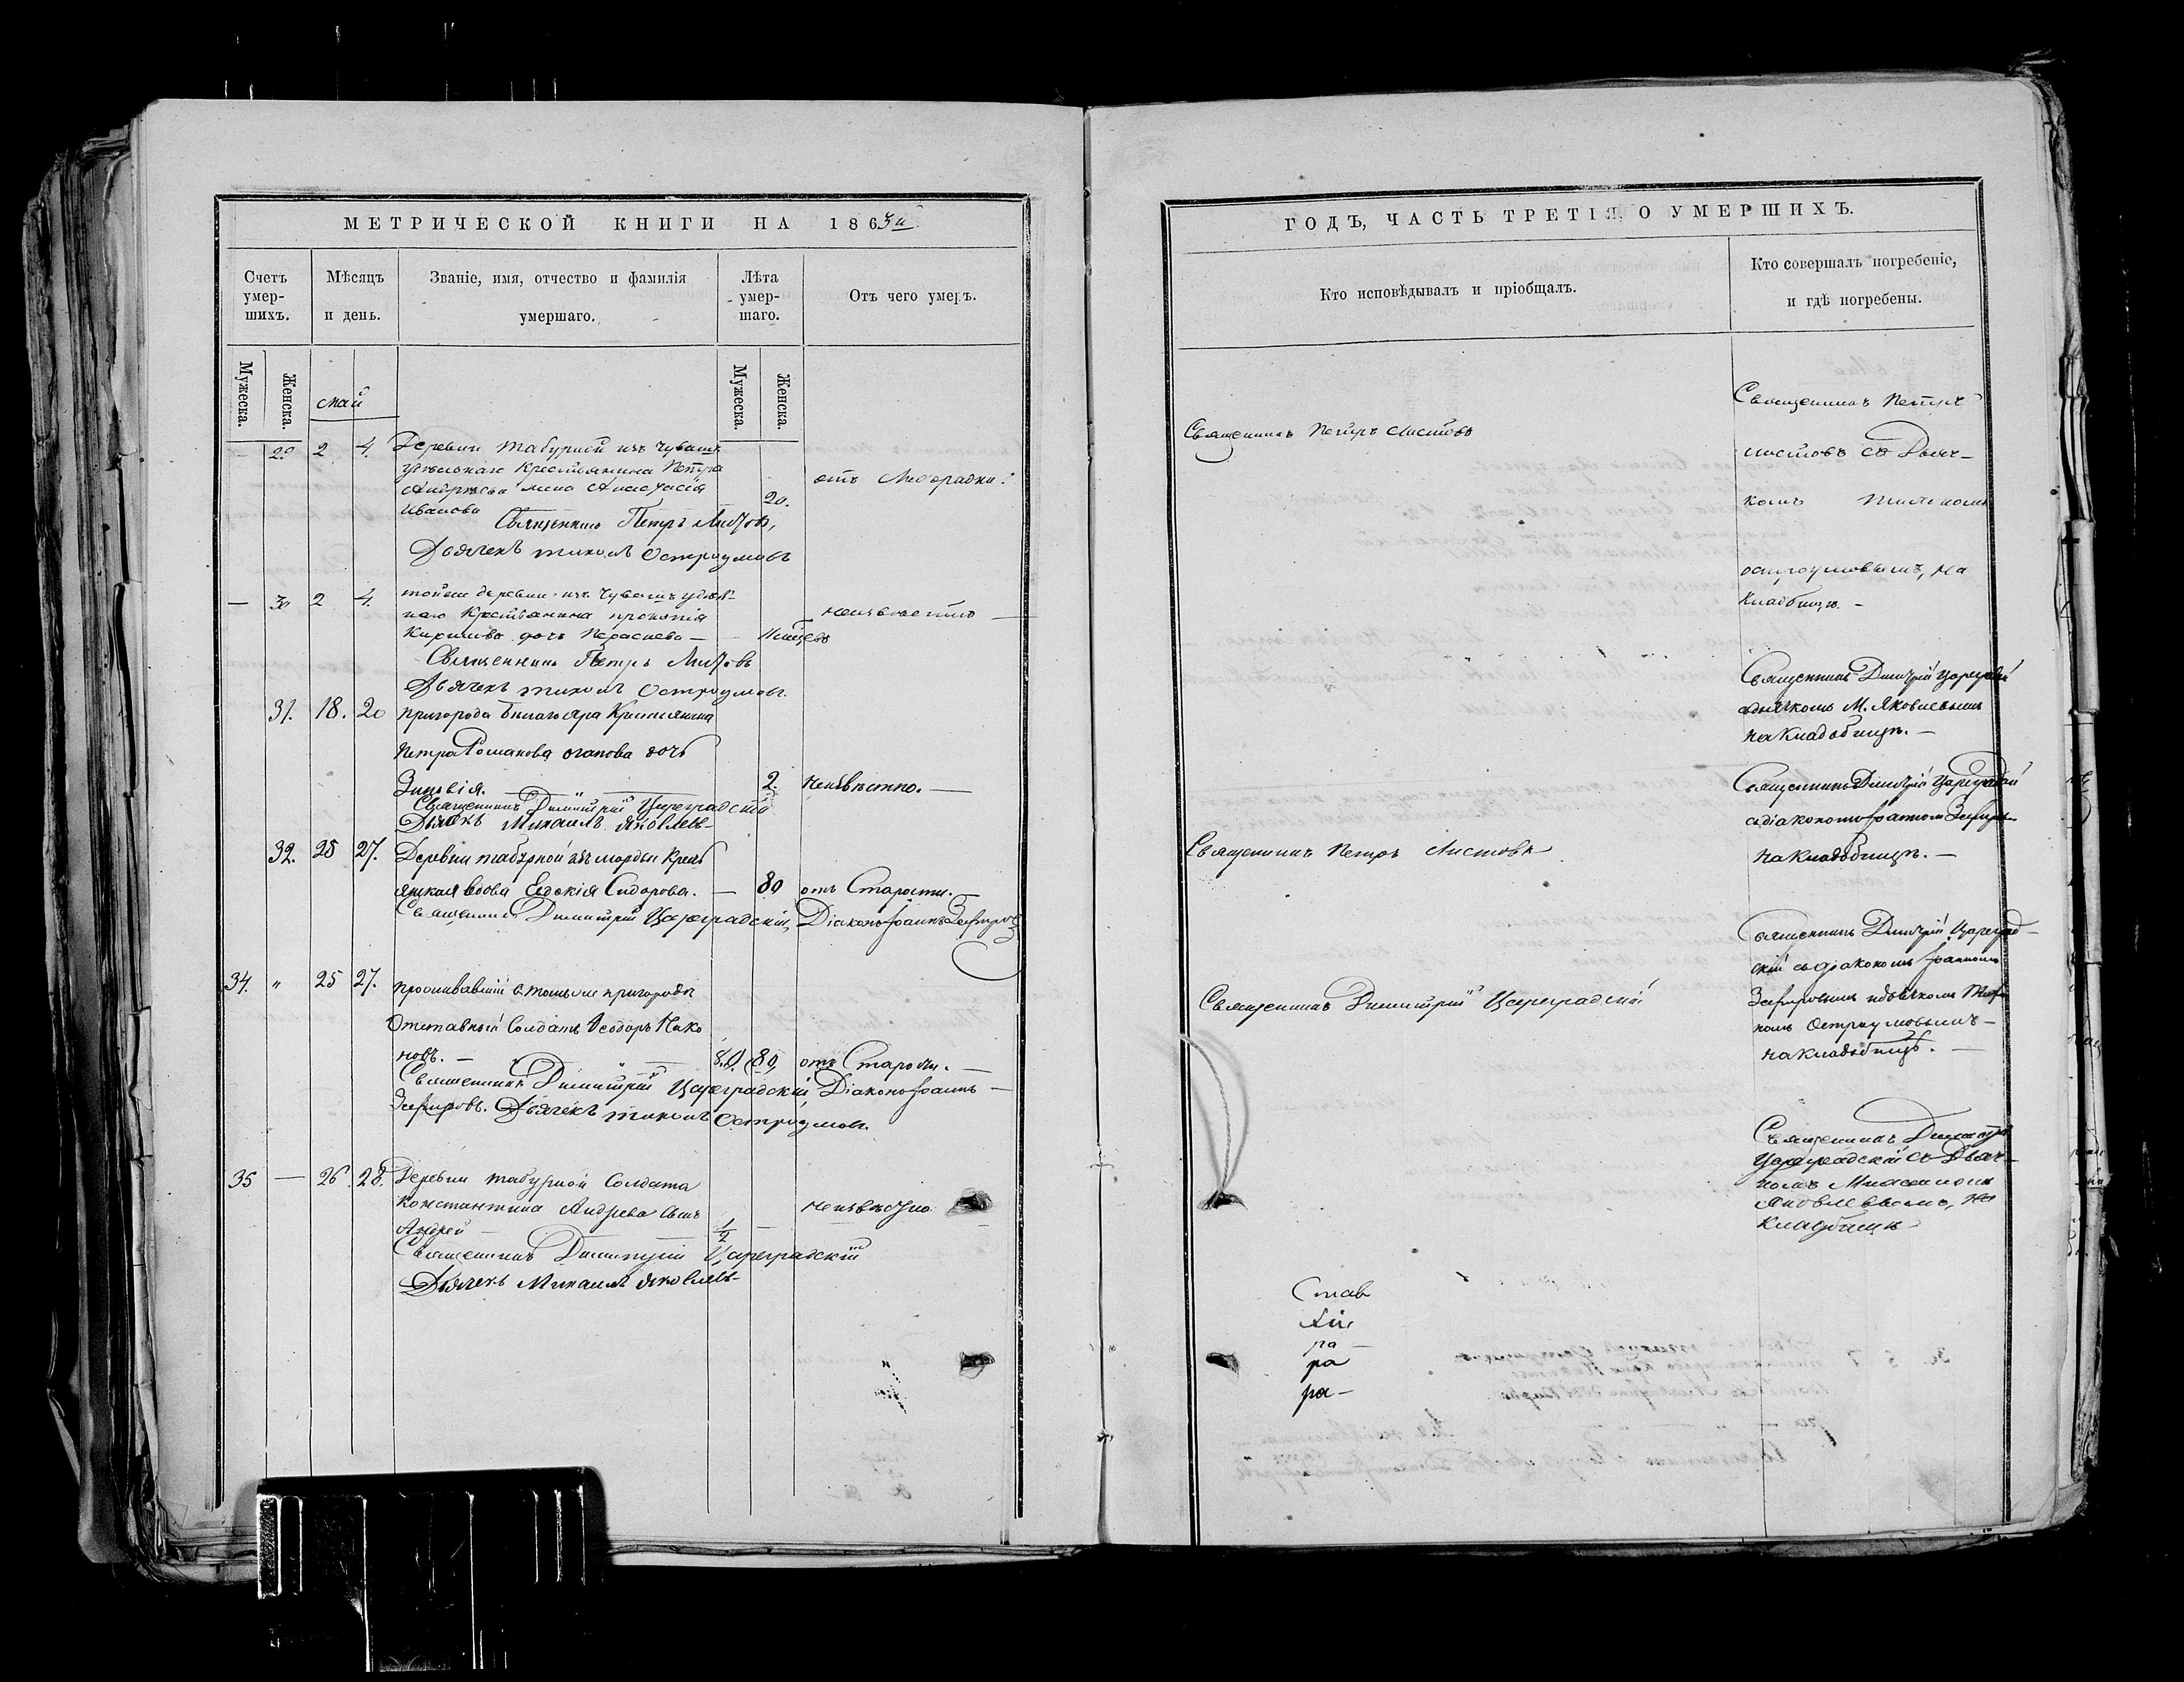 МЕТРИЧЕСКОЙ КНИГИ НА 1863й
Счетъ умер-шихъ.
Мѣсяцъ и день.
Званіе, имя, отчество и фамилія умершаго.
Лѣта умер-шаго.
Отъ чего умеръ.
Мужеска.
Женска.
Май
Мужеска.
Женска.
29 2 4. Деревни Табурной изъ Чувашъ
удѣльнаго Крестьянина Петра
Андрѣева жена Анастасія
Иванова 20. отъ Лихорадки.
Священникъ Петръ Листовъ,
Дьячекъ Тихонъ Остроумовъ
— 30 2 4. той же деревни изъ Чувашъ
Крестьянина
Кирилова дочь — неизвѣстно —
Священникъ Петръ Листовъ
Дьячекъ Тихонъ Остроумовъ.
31. 18. 20 пригорода Бѣлаго Яра Крестьянина
Петра Романова дочь
Зиновія. — 2. Неизвѣстно. —
Священникъ Димитрій Цареградскій
Дьячекъ Михаилъ Яковлевъ
32. 25 27. Деревни Табурной изъ мордвы Крестъ
янская вдова Евдокія Сидорова. — 80 отъ Старости. —
Священникъ Димитрій Цареградскій, Діаконъ Іоаннъ Зефировъ
34. " 25 27. проживавшій въ томъ же пригородѣ
Отставный Солдатъ Ѳеодоръ
новъ. — 80. 80 отъ Старости. —
Священникъ Димитрій Цареградскій, Діаконъ Іоаннъ —
Зефировъ. Дьячекъ Тихонъ Остроумовъ.
35 — 26. 28. Деревни Табурной Солдата
Константина Андрева сынъ
Андрей — 1/2 — неизвѣстно
Священникъ Димитрій Цареградскій
Дьячекъ Михаилъ Яковлевъ
ГОДЪ, ЧАСТЬ ТРЕТІЯ, О УМЕРШИХЪ.
Кто исповѣдывалъ и пріобщалъ.
Кто совершалъ погребеніе, и гдѣ погребены.
Священникъ Петръ Листовъ
Священникъ Петръ
Листовъ съ Дьяч-
комъ Тихономъ
Остроумовымъ, на
Кладбищѣ. —
Священникъ Димитрій Цареградскій
съ дьячкомъ М. Яковлевымъ
на Кладбищѣ. —
Священникъ Петръ Листовъ
Священникъ Димитрій Цареградскій
съ діакономъ Іоанномъ
на Кладбищѣ. —
Священникъ Димитрій Цареградскій
Священникъ Димитрій Цареград-
скій съ діакономъ Іоанномъ
Зефировымъ и дьячкомъ Тихо
номъ Остроумовымъ —
на Кладбищѣ. —
Священникъ Димитрій
Цареградскій съ Дьяч-
комъ Михаиломъ
Яковлевымъ, на
Кладбищѣ
Став
ра —
ра
ра —